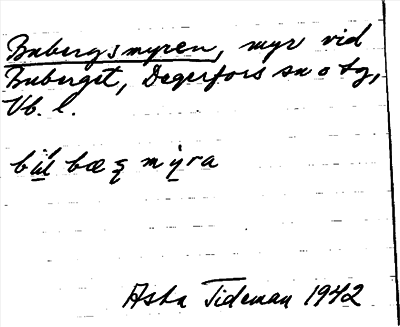 Bubergsmyren, myr vid
Buberget, Degerfors sn o tg,
Vb. l.
mýra
Asta Tideman 1942